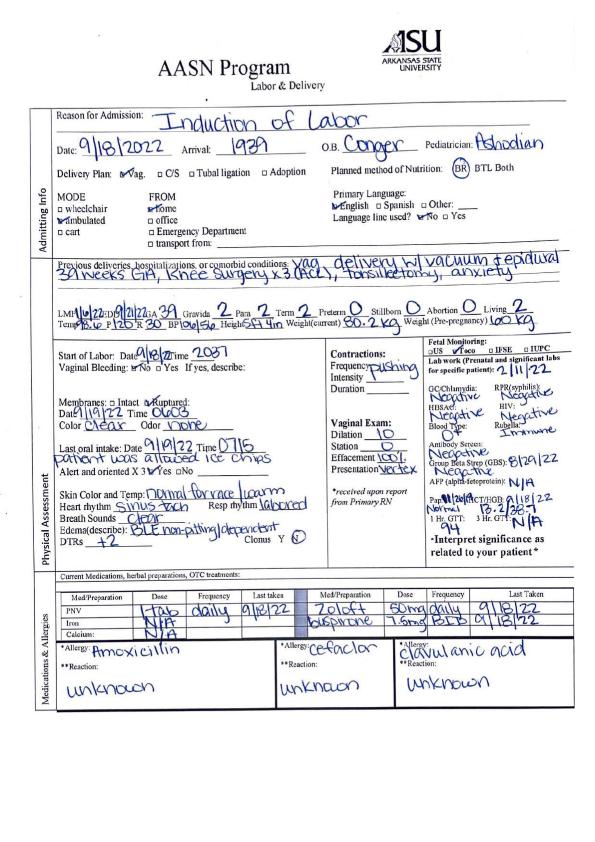 ASU
ARKANSAS STATE
UNIVERSITY
AASN Program
Labor & Delivery
Admitting Info
Reason for Admission: Induction of Labor
Date: 9/18/2022 Arrival: 1939 O.B. Conger Pediatrician: Ashodian
Delivery Plan: Vag. □ C/S □ Tubal ligation □ Adoption Planned method of Nutrition: BR BTL Both
MODE FROM Primary Language:
□ wheelchair Home English □ Spanish □ Other: ___
Ambulated □ office Language line used? No □ Yes
□ cart □ Emergency Department
□ transport from:
Previous deliveries, hospitalizations, or comorbid conditions: vag delivery w/ vacuum & epidural
39 weeks GA, Knee Surgery x 3 (ACL), tonsillectomy, anxiety
EDD 9/21/22 GA 39 Gravida 2 Para 2 Term 2 Preterm 0 Stillborn 0 Abortion 0 Living 2
Temp 98.6 P 126 R 30 BP Height 5ft 4in Weight(current) 80.2 kg Weight (Pre-pregnancy) 60 kg
Physical Assessment
Start of Labor: Date 9/18/22 Time 2037
Vaginal Bleeding: No □ Yes If yes, describe:
Membranes: □ Intact Ruptured:
Date 9/19/22 Time 0603
Color clear Odor none
Last oral intake: Date 9/19/22 Time 0715
patient was allowed ice chips
Alert and oriented X 3 Yes □No
Skin Color and Temp: normal for race / warm
Heart rhythm sinus tach Resp rhythm labored
Breath Sounds clear
Edema(describe): BLE non-pitting/dependent
DTRs +2 Clonus Y N
Contractions:
Frequency pushing
Intensity
Duration
Vaginal Exam:
Dilation 10
Station 0
Effacement 100%
Presentation vertex
*received upon report
from Primary RN
Fetal Monitoring:
□US Toco □ IFSE □ IUPC
Lab work (Prenatal and significant labs
for specific patient): 2/11/22
GC/Chlamydia: RPR(syphilis):
Negative Negative
HBSAg: HIV:
Negative Negative
Blood Type: Rubella:
O+ Immune
Antibody Screen:
Negative
Group Beta Strep (GBS): 8/29/22
Negative
AFP (alpha-fetoprotein): N/A
Pap HCT/HGB: 9/18/22
Normal 13.2/38.7
1 Hr. GTT: 3 Hr. GTT: N/A
94
*Interpret significance as
related to your patient*
Medications & Allergies
Current Medications, herbal preparations, OTC treatments:
Med/Preparation Dose Frequency Last taken Med/Preparation Dose Frequency Last Taken
PNV 1 tab daily 9/18/22 Zoloft 50mg daily 9/18/22
Iron N/A buspirone 7.5mg BID 9/18/22
Calcium: N/A
*Allergy: Amoxicillin *Allergy: cefaclor *Allergy: clavulanic acid
**Reaction: **Reaction: **Reaction:
unknown unknown unknown